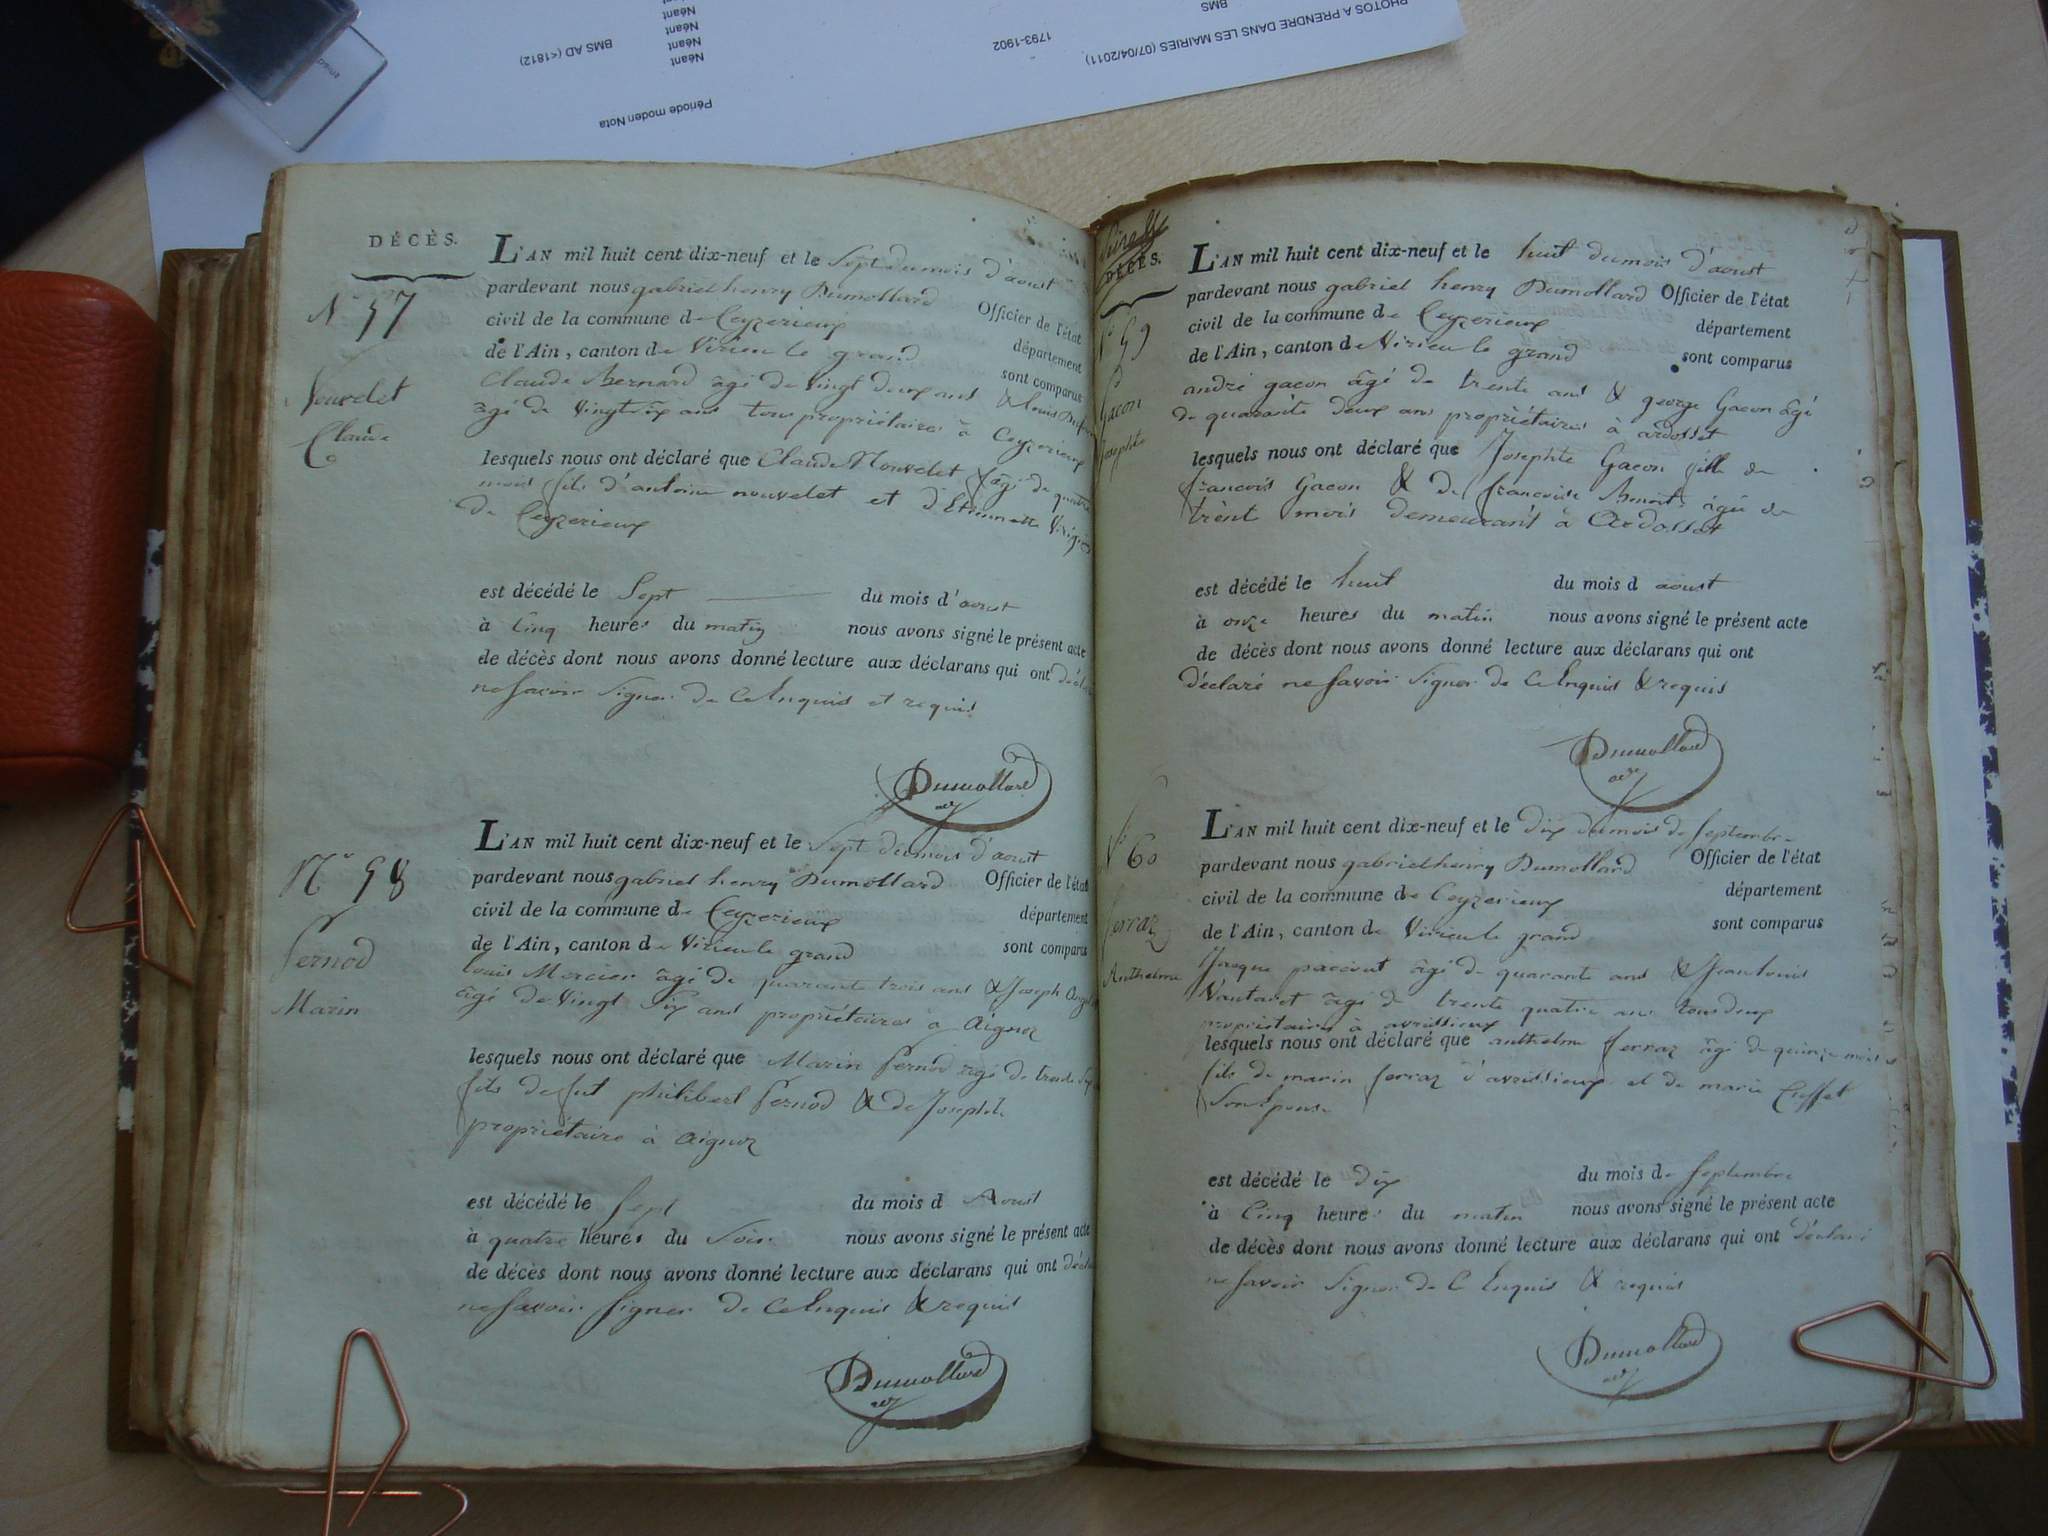 PHOTOS A PRENDRE DANS LES MAIRIES (07/04/2011)
BMS
1793-1902
BMS AD (<1812)
Néant
Néant
Néant
Néant
Période moden Nota
DÉCÈS.
N° 57
Claude
L'AN mil huit cent dix-neuf et le Sept du mois d'aoust
pardevant nous gabriel henry Dumollard Officier de l'état
civil de la commune de Ceyzerieux département
de l'Ain, canton de Virieu le grand sont comparus
Claude Bernard âgé de vingt deux ans & Louis
âgé de vingt six ans tous propriétaires à Ceyzerieux
lesquels nous ont déclaré que Claude Nouvelet âgé de quatre
mois fils d'antoine nouvelet et d'Etiennette
de Ceyzerieux
est décédé le Sept du mois d'aoust
à Cinq heures du matin nous avons signé le présent acte
de décès dont nous avons donné lecture aux déclarans qui ont
ne savoir signer de ce Enquis et requis
Dumollard
N° 58
Fernod
Marin
L'AN mil huit cent dix-neuf et le Sept du mois d'aoust
pardevant nous gabriel henry Dumollard Officier de l'état
civil de la commune de Ceyzerieux département
de l'Ain, canton de Virieu le grand sont comparus
louis Mercier âgé de quarante trois ans & Joseph
âgé de vingt six ans propriétaires à Aignoz
lesquels nous ont déclaré que Marin fernod âgé de trente
fils de fut philibert fernod & de Josephte
propriétaire à Aignoz
est décédé le Sept du mois d Aoust
à quatre heures du Soir nous avons signé le présent acte
de décès dont nous avons donné lecture aux déclarans qui ont
ne savoir signer de ce Enquis & requis
Dumollard
DÉCÈS.
N° 59
Gacon
Josephte
L'AN mil huit cent dix-neuf et le huit du mois d'aoust
pardevant nous gabriel henry Dumollard Officier de l'état
civil de la commune de Ceyzerieux département
de l'Ain, canton de Virieu le grand sont comparus
andré gacon âgé de trente ans & george Gacon âgé
de quarante deux ans propriétaires à ardosset
lesquels nous ont déclaré que Josephte Gacon fille de
francois Gacon & de francoise Benoit âgée de
trente mois demeurant à Ardosset
est décédé le huit du mois d aoust
à onze heures du matin nous avons signé le présent acte
de décès dont nous avons donné lecture aux déclarans qui ont
déclaré ne savoir signer de ce Enquis & requis
Dumollard
N° 60
ferraz
Anthelme
L'AN mil huit cent dix-neuf et le dix du mois de septembre
pardevant nous gabriel henry Dumollard Officier de l'état
civil de la commune de Ceyzerieux département
de l'Ain, canton de Virieu le grand sont comparus
Jacque âgé de quarante ans & Jean louis
Vautaret âgé de trente quatre ans tous deux
propriétaires à avrissieux
lesquels nous ont déclaré que anthelme ferraz âgé de quinze mois
fils de marin ferraz d'avrissieux et de marie
Son épouse
est décédé le dix du mois de septembre
à Cinq heures du matin nous avons signé le présent acte
de décès dont nous avons donné lecture aux déclarans qui ont déclaré
ne savoir signer de C Enquis & requis
Dumollard